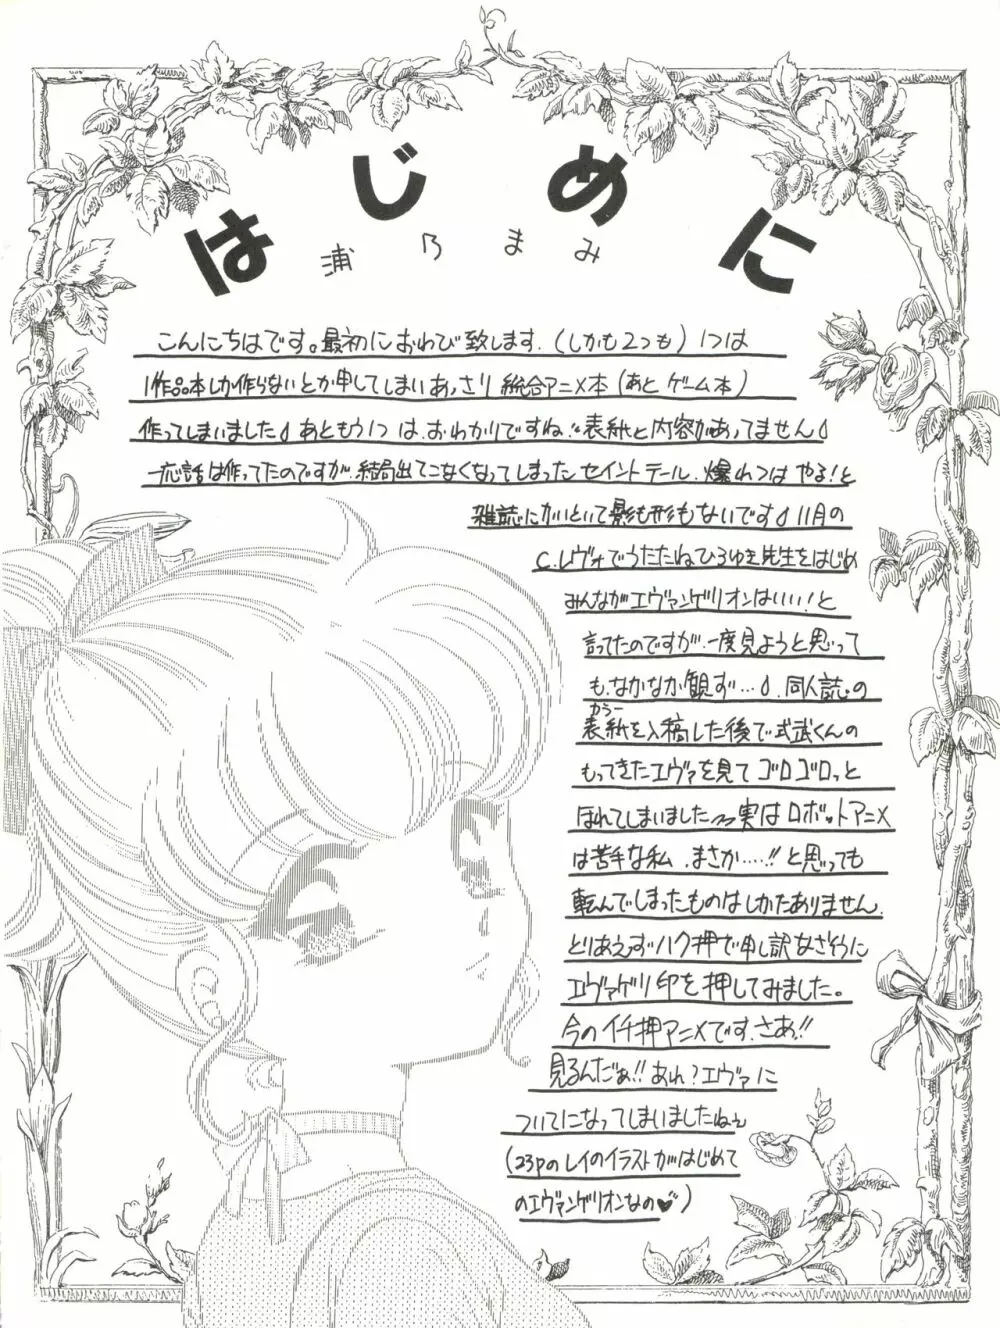 はじめに
浦乃まみ
こんにちはです。最初におわび致します.(しかも2つも)1つは
1作品本しか作らないとか申してしまいあっさり総合アニメ本(あとゲーム本)
作ってしまいました あともう1つは、おわかりですね!表紙と内容があってません
一応話は作ってたのですが、結局出てこなくなってしまったセイントテール、爆れつはやる!と
雑誌にかいといて影も形もないです 11月の
C.レヴォでうたたねひろゆき先生をはじめ
みんながエヴァンゲリオンはいい!と
言ってたのですが、一度見ようと思って
も、なかなか観ず…、同人誌の
カラー
表紙を入稿した後で式武くんの
もってきたエヴァを見てゴロゴロっと
ほれてしまいました 実はロボットアニメ
は苦手な私、まさか……!!と思っても
転んでしまったものはしかたありません.
とりあえずハク押で申し訳なさそうに
エヴァゲリ印を押してみました。
今のイチ押アニメです.さあ!!
見るんだぁ!!あれ?エヴァに
ついてになってしまいましたねぇ
(23pのレイのイラストがはじめて
のエヴァンゲリオンなの♥)